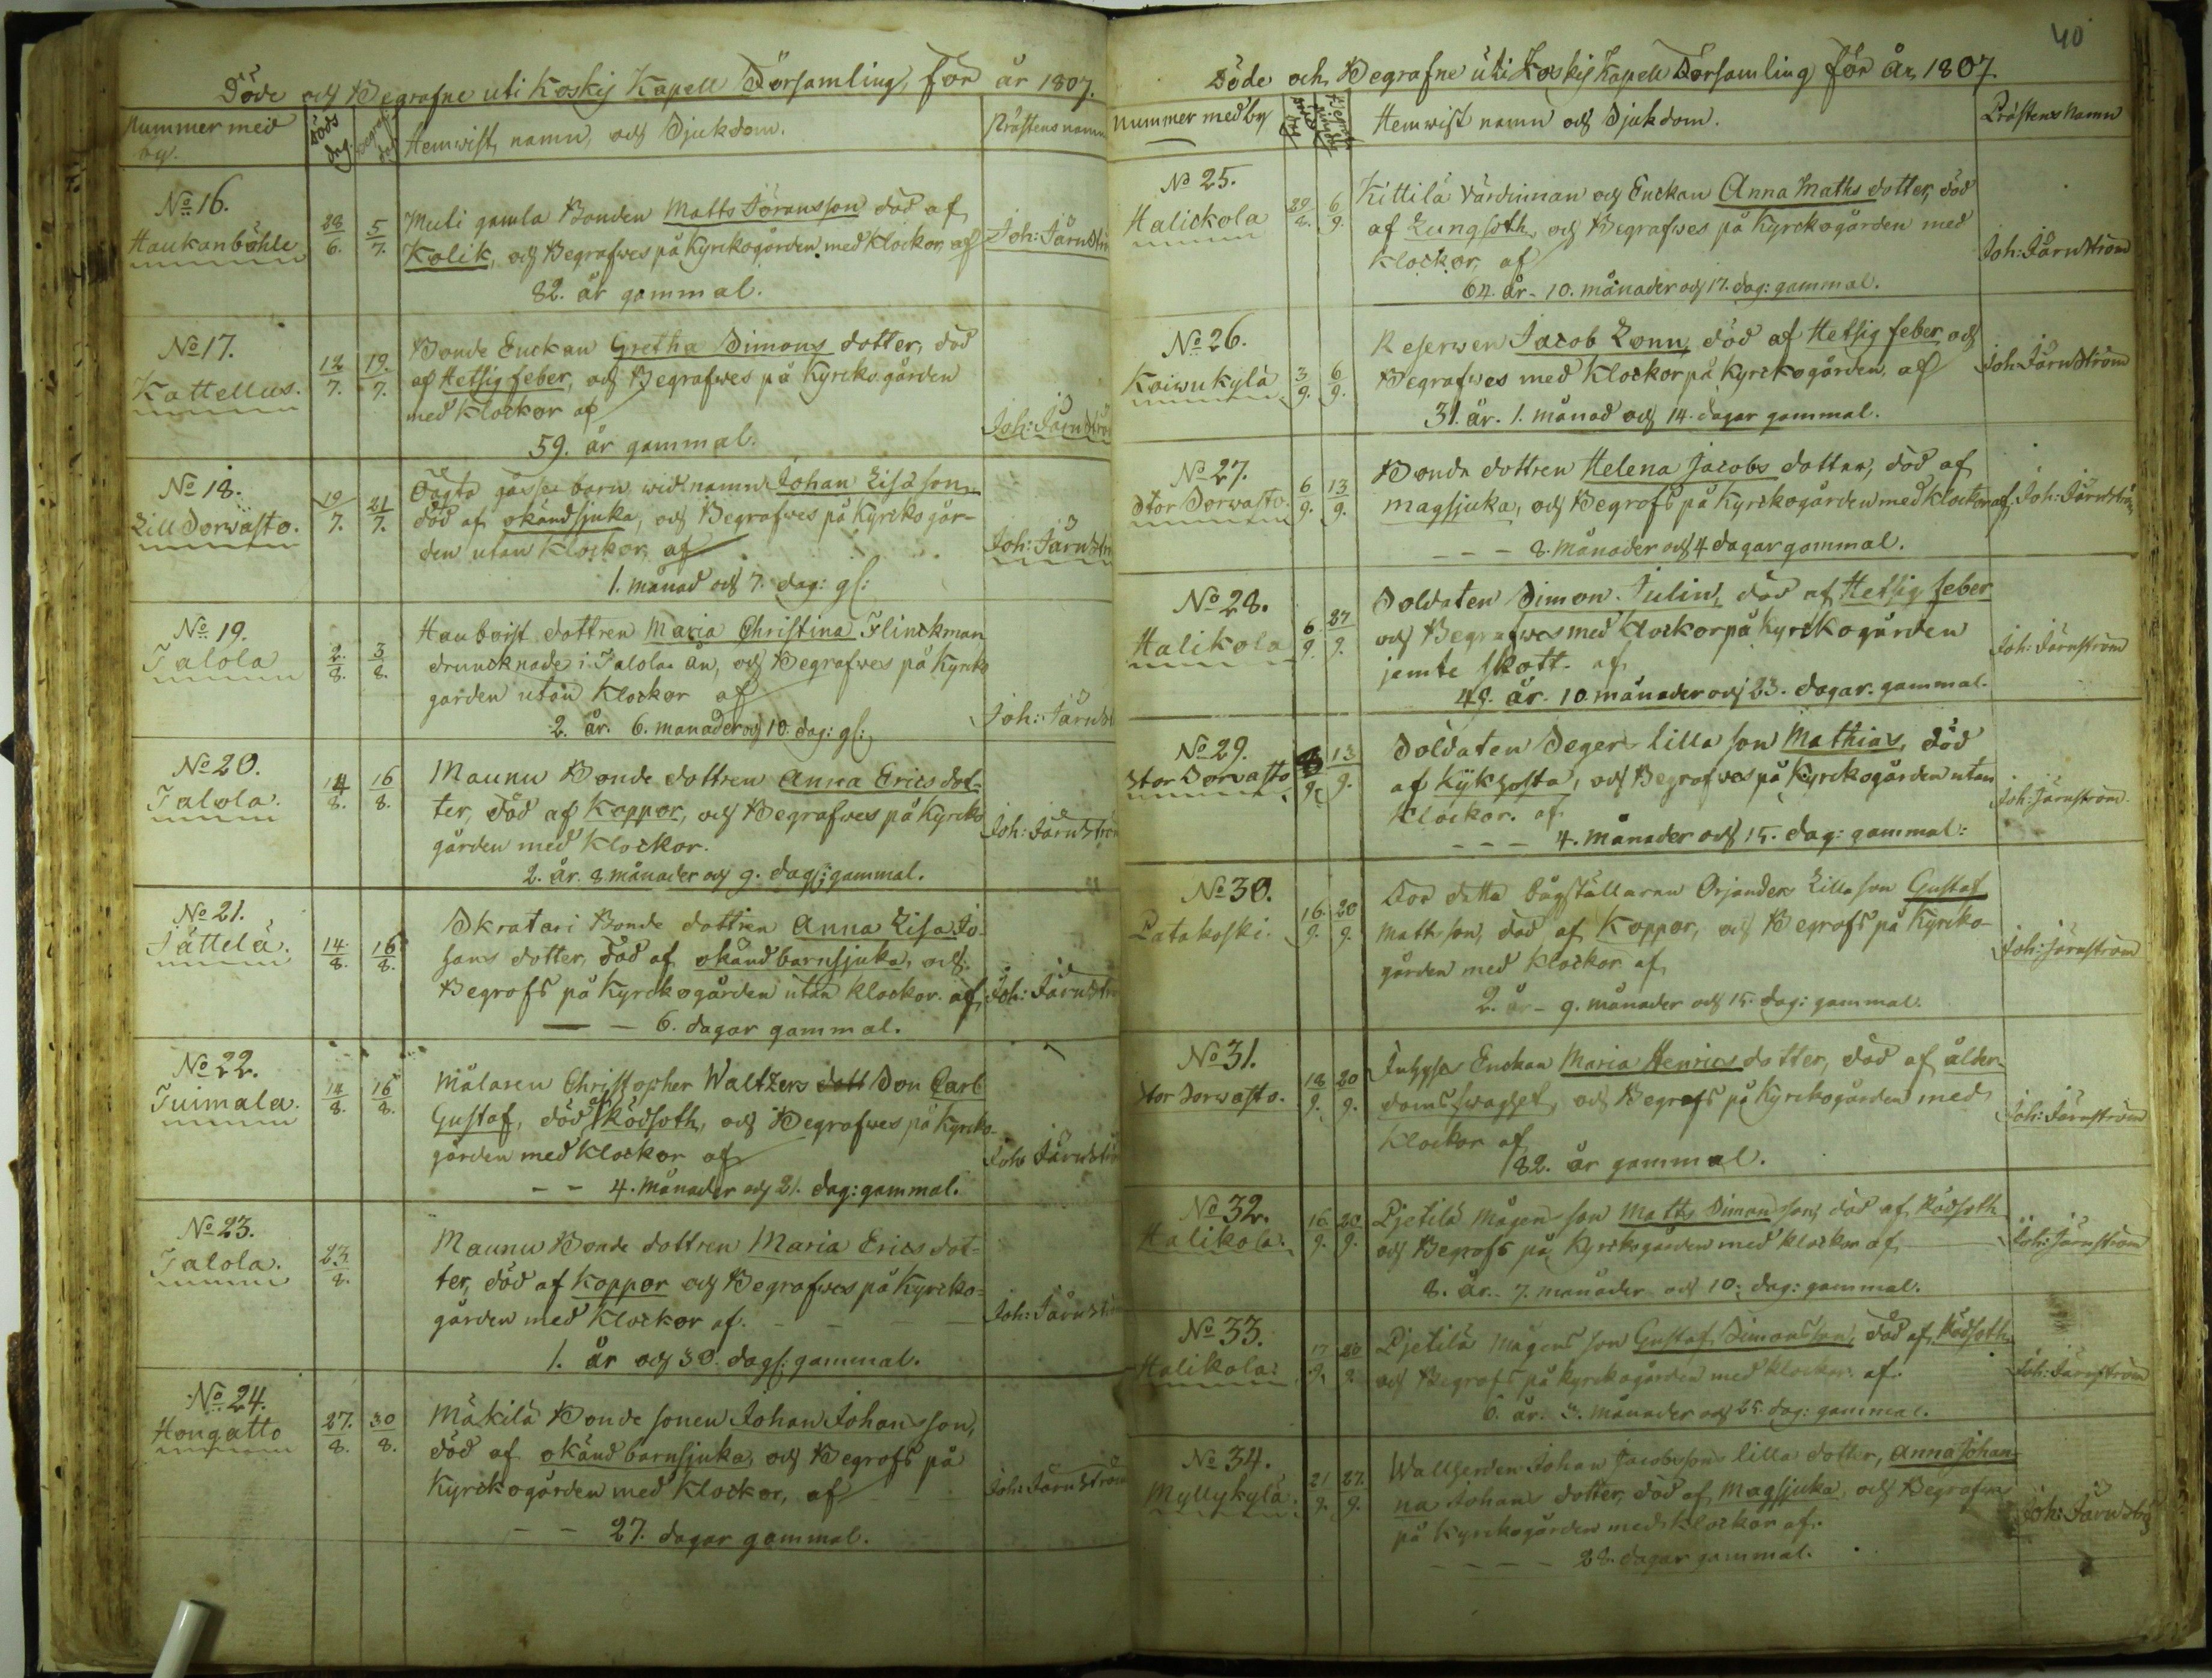 Döde och Begrafne uti Koskis Kapell Församling, för år 1807.
Nummer med by.
Döds dag.
Begrafn dag
Hemwist, namn, och Sjukdom.
Prästens namn
No 16.
Haukanböhle
28/6.
5/7.
Muli gamla Bonden Matts Göransson död af
Kolik, och Begrafwes på Kyrckogården med Klockor, af
82. år gammal.
Joh: Järnström
No 17.
Kattellus.
12/7.
19./7.
Bonde Enckan Gretha Simons dotter, död
af Hetsig feber, och Begrafwes på Kyrckogården
med Klockor af
59. år gammal.
Joh: Järnströ
No 18.
Lill Sorwasto.
19/7.
21/7.
Oägta gåsse barn wid namn Johan Lisa son
död af okändsjuka, och Begrafwes på Kyrckogår-
den utan Klockor, af
1. månad och 7. dag: gl:
Joh: Järnstr
No 19.
Talola
2./8.
3/8.
Hauboist dottren Maria Christina Flinckman
druncknade i Talola ån, och Begrafwes på Kyrcko
garden utan Klockor af
2. år. 6. manader och 10. dag: gl:
Joh: Järnst
No 20.
Talola.
14/8.
16/8.
Maunu Bonde dottren Anna Erics dot-
ter, död af Koppor, och Begrafwes på Kyrcko
gården med Klockor.
2. år. 8. månader och 9. dag: gammal.
Joh: Järnström
No 21.
Tättelä.
14./8.
16/8.
Skratari Bonde dottren Anna Lisa Jo-
hans dotter, död af okändbarnsjuka, och
Begrofs på Kyrckogården utan klockor. af
— — 6. dagar gammal.
Joh: Järnstr
No 22.
Tuimala.
14/8.
16/8.
Målaren Christopher Waltzers dott Son Carl
Gustaf, död af Rödsoth, och Begrafwes på Kyrcko-
gården med Klockor af
- - 4. Månader och 21. dag: gammal.
Joh Järnströ
No 23.
Talola.
23./8.
Maunu Bonde dottren Maria Erics dot-
ter, död af Koppor och Begrafwes på Kyrcko-
gården med Klockor af. - - -
1. år och 30. dag: gammal.
Joh: Järnström
No 24.
Hongatto
27./8.
30/8.
Mäkilä Bonde sonen Johan Johansson,
död af okändbarnsjuka, och Begrofs på
Kyrckogården med Klockor, af
- - 27. dagar gammal.
Joh: Järnström
40
Döde och Begrafne uti Koskis Kapell Församling för År, 1807.
Nummer med by
Hemwist namn och Sjukdom.
Prästens Namn
No 25.
Halickola
29/8.
6/9.
Kittilä värdinnan och Enckan Anna Maths dotter, död
af Lungsoth, och Begrafwes på Kyrckogården med
Klockor, af
64. år. 10. månader och 17. dag: gammal.
Joh: Järnström
No 26.
Koiwukylä
3/9.
6/9.
Reserwen Jacob Lönn, död af Hetsig feber och
Begrafwes med Klockor på Kyrckogården, af
31. år. 1. månad och 14. dagar gammal.
Joh Järnström
No 27.
Stor Sorwasto.
6/9.
13/9.
Bonde dottren Helena Jacobs dotter, död af
magsjuka, och Begrofs på Kyrckogården med Klockor af
- - - 8. månader och 4 dagar gammal.
Joh: Järnström
No 28.
Halikola
6/9.
27/9.
Soldaten Simon Julin, död af Hetsig feber
och Begrafwes med Klockor på Kyrckogården
jemte skott. af
49. år. 10. månader och 23. dagar. gammal.
Joh: Järnström
No 29.
Stor Sorwasto
9.
13/9.
Soldaten Segers lilla son Mathias, död
af Kykhosta, och Begrafwes på Kyrckogården utan
Klockor. af
- - - 4. månader och 15. dag: gammal:
Joh: Järnström.
No 30.
Patakoski.
16./9.
20/9.
Matts son, död af Koppor, och Begrofs på Kyrcko-
gården med Klockor af
2. år - 9. månader och 15. dag: gammal.
Joh: Järnström
No 31.
Stor Sorwasto.
18/9.
20/9.
Inhyses Enckan Maria Henrics dotter, död af ålder-
domsswaghet, och Begrofs på Kyrckogården med
Klockor af
82. år gammal.
Joh: Järnström
No 32.
Halikola.
16./9.
20/9.
Pjetilä Mågen son Matts Simonsson, död af Rödsoth
och Begrofs på Kyrckogården med klockor af
8. år. 7. månader och 10. dag: gammal.
Joh: Järnström
No 33.
Halikola:
17/9.
20/9.
Pjetilä Mågens son Gustaf Simonsson, död af Rödsoth
och Begrofs på Kyrckogården med klockor. af.
6. år. 3. månader och 25. dag: gammal.
Joh: Järnström
No 34.
Myllykylä.
21/9.
27./9.
Johan Jacobssons lilla dotter, Anna Johan-
na Johans dotter, död af Magsjuka, och Begrafwes
på Kyrckogården med Klockor af.
- - - - 28. dagar gammal.
Joh: Järnströ